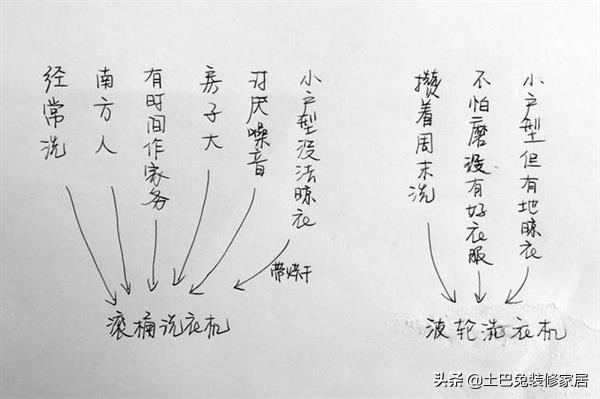 经常洗
南方人
有时间作家务
房子大
讨厌噪音
小户型没法晾衣
带烘干
滚桶洗衣机
攒着周末洗
不怕磨没有好衣服
小户型但有地晾衣
波轮洗衣机
头条@土巴兔装修家居